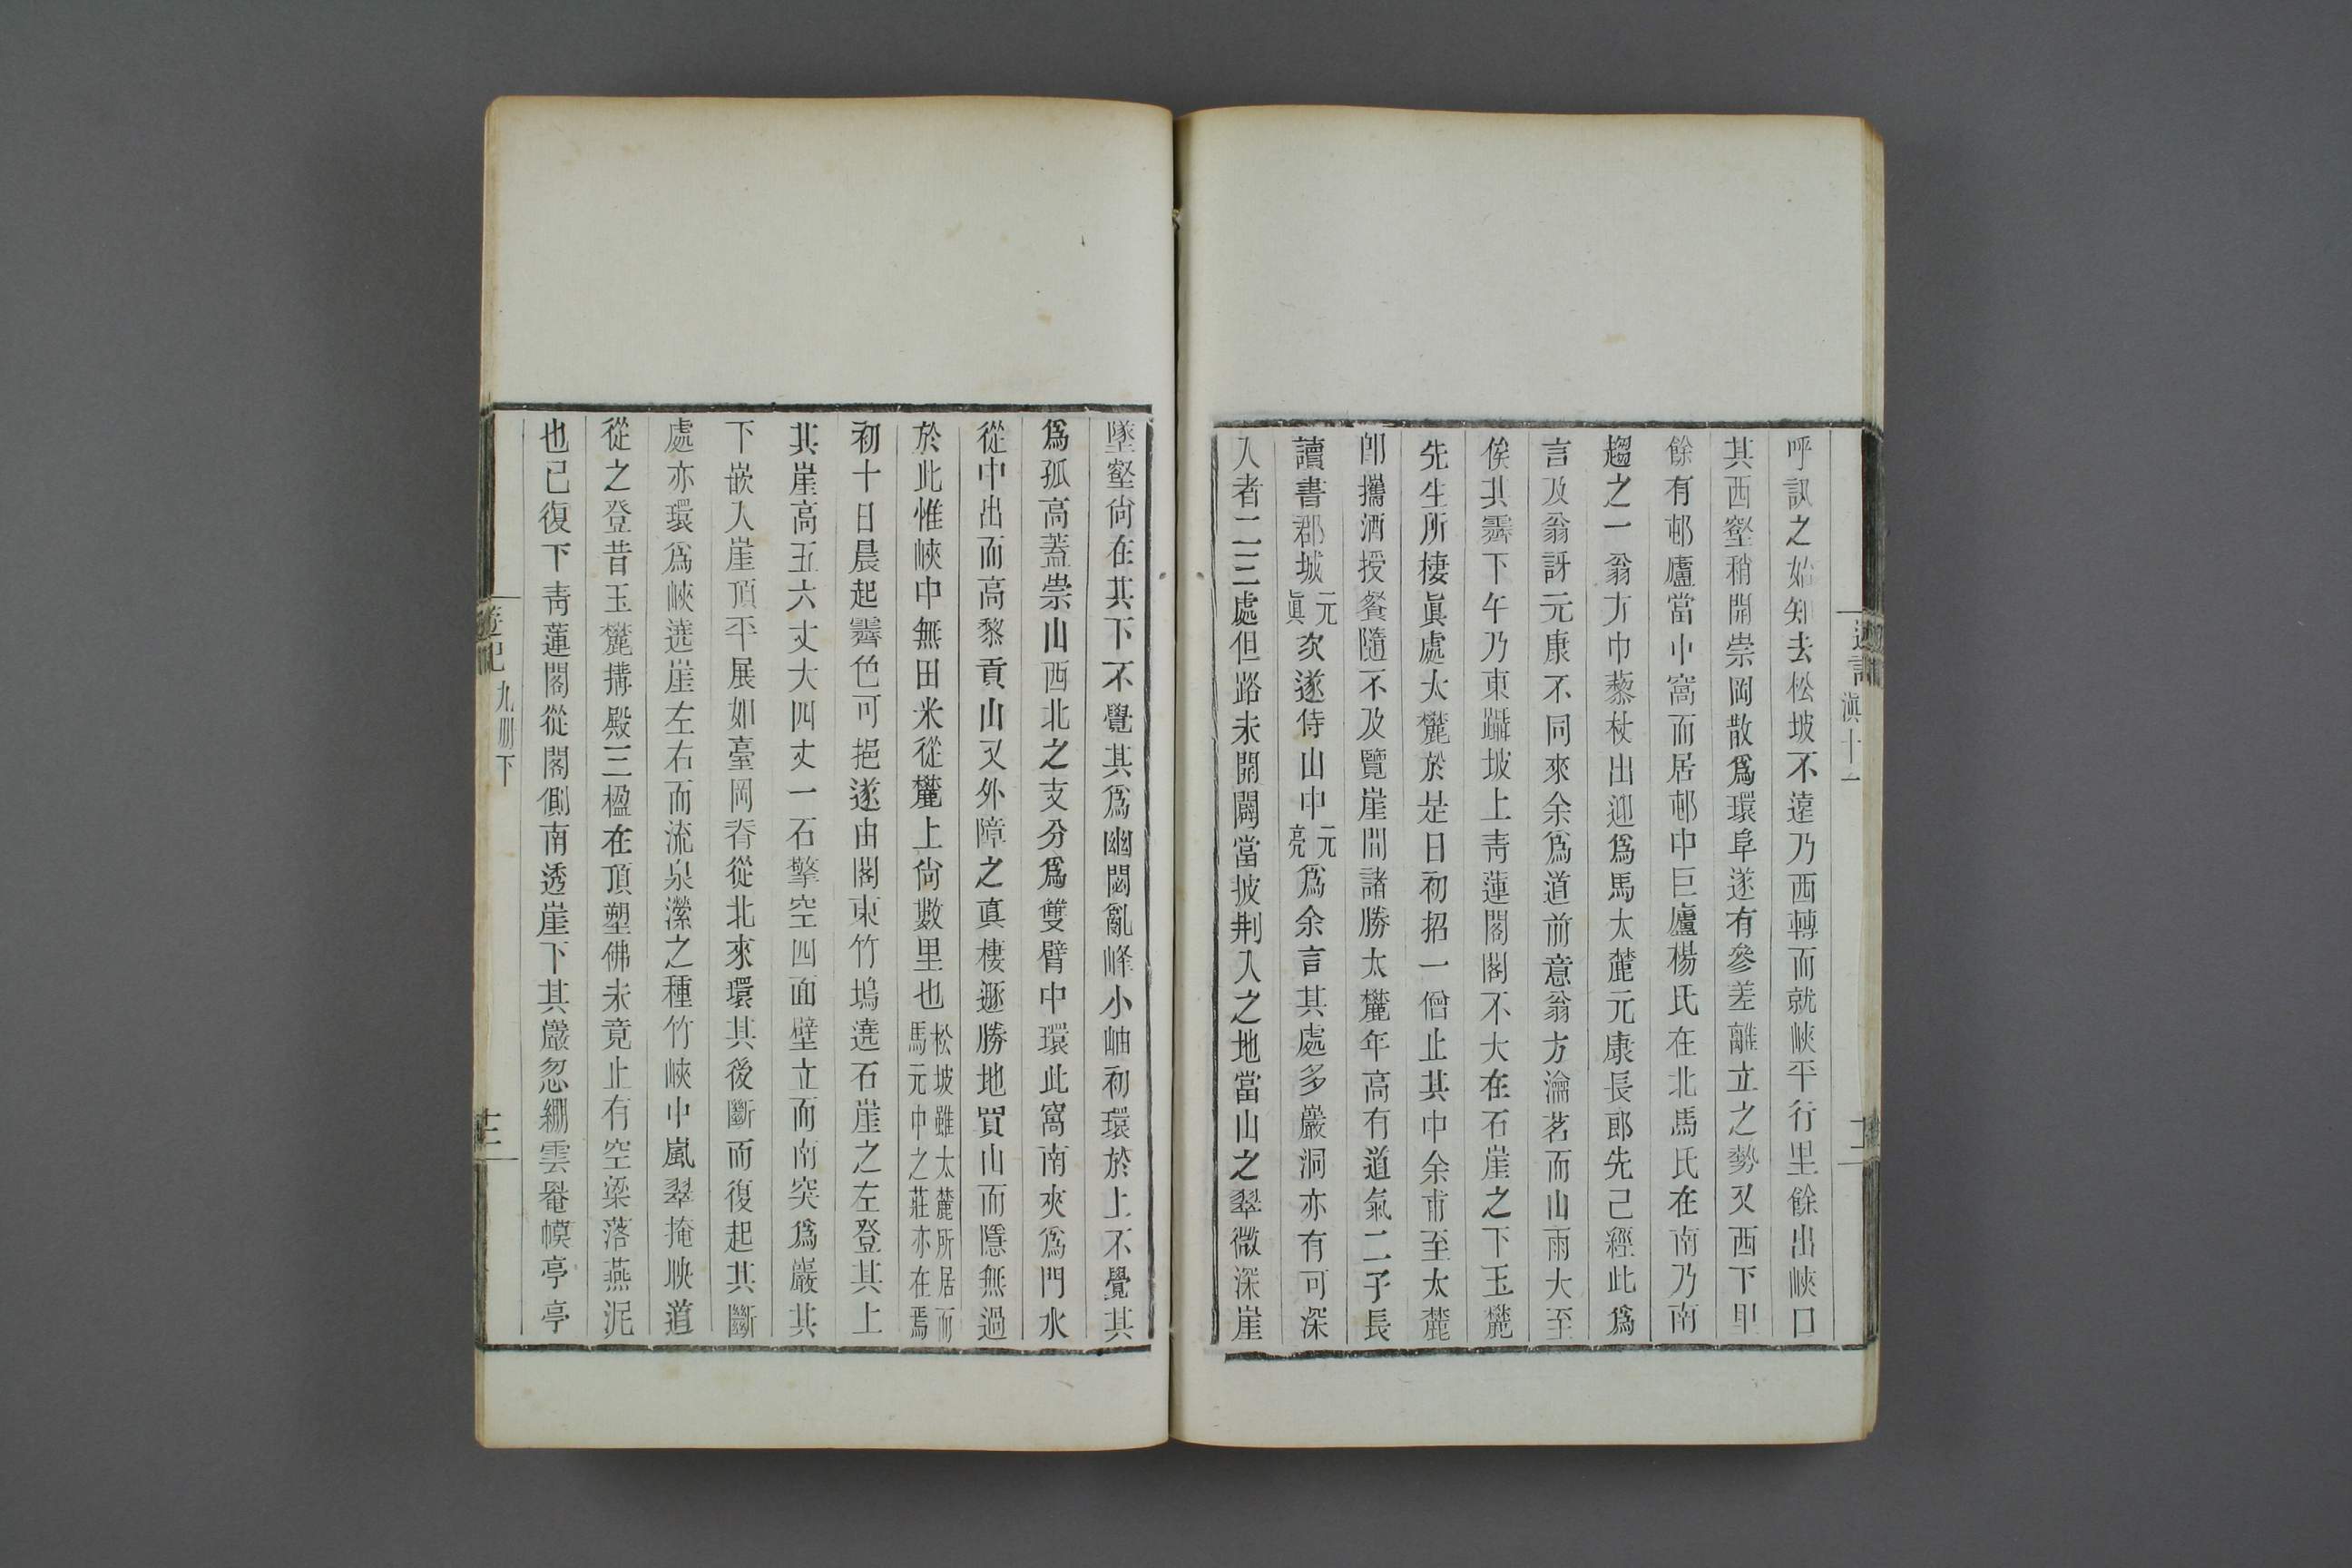 遊記 滇十一
呼訊之始知去松坡不遠乃西轉而就峽平行里餘出峽口
其西壑稍開崇岡散爲環阜遂有參差離立之勢又西下里
餘有邨廬當中窩而居邨中巨廬楊氏在北馬氏在南乃南
趨之一翁方巾藜杖出迎爲馬太麓元康長郎先已經此爲
言及翁訝元康不同來余爲道前意翁方瀹茗而山雨大至
俟其霽下午乃東躡坡上靑蓮閣閣不大在石崖之下玉麓
先生所棲眞處太麓於是日初招一僧止其中余甫至太麓
卽攜酒授餐隨不及覽崖間諸勝太麓年高有道氣二子長
讀書郡城元眞次遂侍山中元亮爲余言其處多巖洞亦有可深
入者二三處但路未開闢當披荆入之地當山之翠微深崖
墜壑尙在其下不覺其爲幽閟亂峰小岫初環於上不覺其
爲孤高蓋崇山西北之支分爲雙臂中環此窩南夾爲門水
從中出而高黎貢山又外障之眞棲遯勝地買山而隱無過
於此惟峽中無田米從麓上尙數里也松坡雖太麓所居而馬元中之莊亦在焉
初十日晨起霽色可挹遂由閣東竹塢遶石崖之左登其上
其崖高五六丈大四丈一石擎空四面壁立而南突爲巖其
下嵌入崖頂平展如臺岡脊從北來環其後斷而復起其斷
處亦環爲峽遶崖左右而流泉瀠之種竹峽中嵐翠掩映道
從之登昔玉麓搆殿三楹在頂塑佛未竟止有空梁落燕泥
也已復下靑蓮閣從閣側南透崖下其巖忽繃雲罨幙亭亭
遊記 九册下 十三